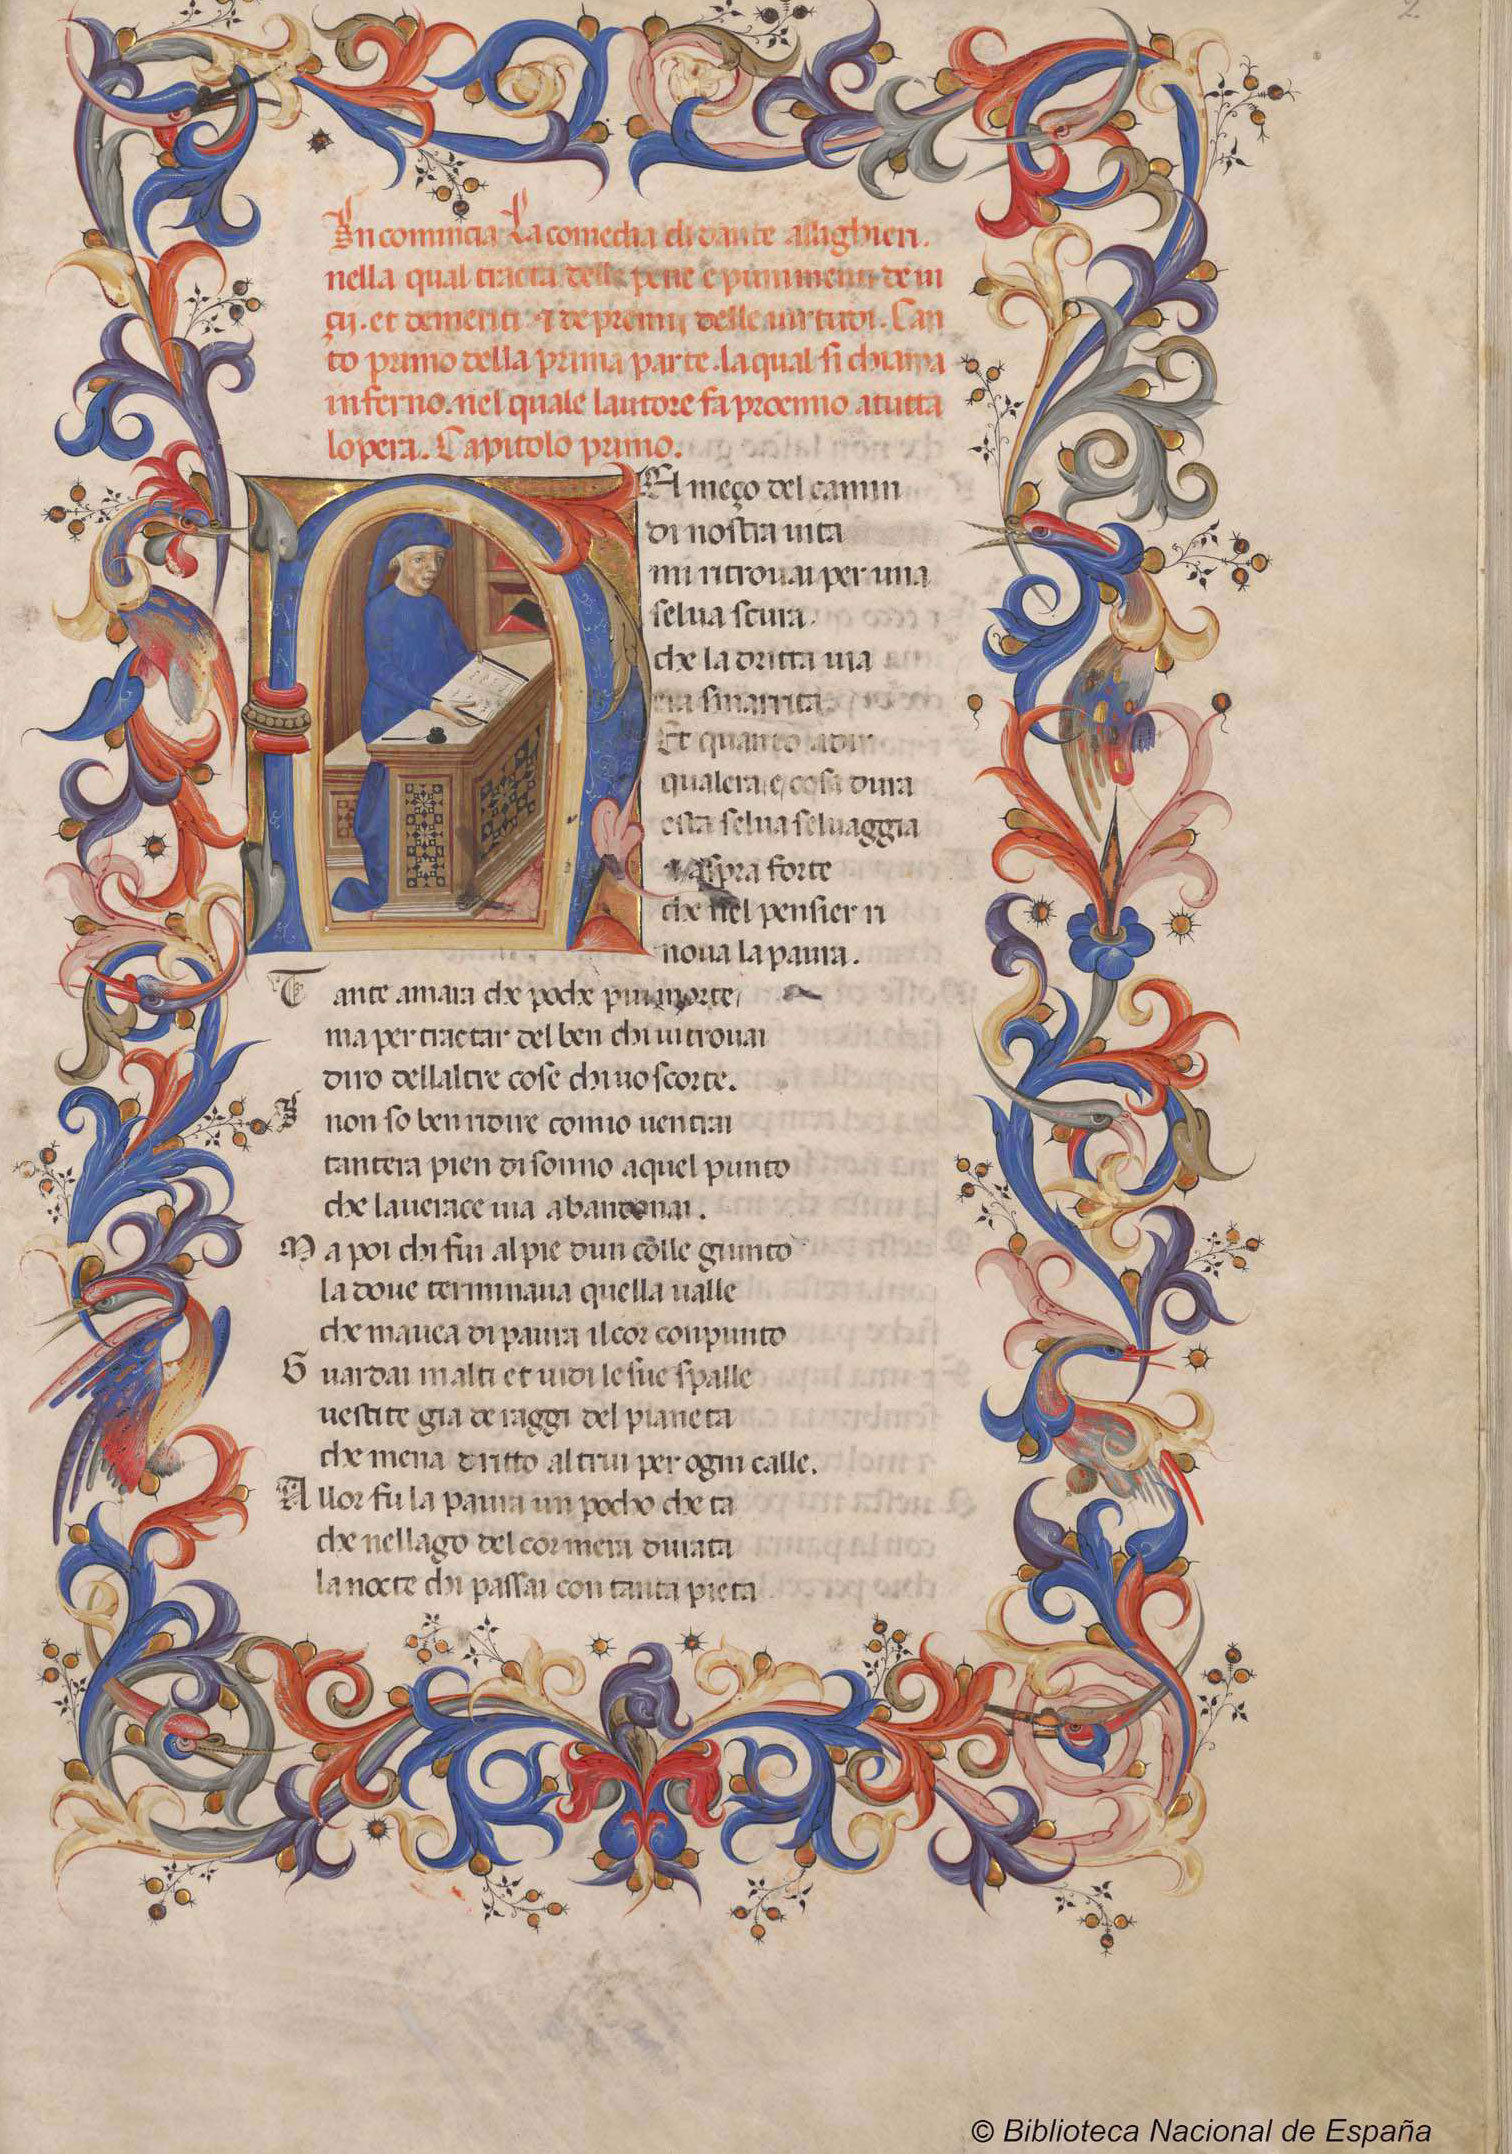 2.
Incomincia La comedia di dante allighieri.
nella qual tracta delle pene e punimenti de ui
çij. et demeriti ⁊ de premij delle uirtudi. Can
to primo della prima parte. la qual si chiama
inferno. nel quale lautore fa proemio atutta
lopera. Capitolo primo.
NEl meço del camin
di nostra uita
mi ritrouai per una
selua scura.
che la dritta uia
era smarrita.
Et quanto adir
qualera e cosa dura
esta selua seluaggia
⁊ aspra forte
che nel pensier ri
noua la paura.
Tante amara che poche piu morte
ma per tractar del ben chi ui trouai
diro dellaltre cose chi uo scorte.
I non so ben ridire comio uentrai
tantera pien di sonno aquel punto
che lauerace uia abandonai.
Ma poi chi fui al pie dun colle giunto
la doue terminaua quella ualle
che mauea di paura il cor conpunto
Guardai in alti et uidi le sue spalle
uestite gia de raggi del pianeta
che mena dritto altrui per ogni calle.
Allor fu la paura un pocho che ta
che nellago del cor mera durata
la nocte chi passai con tanta pieta
© Biblioteca Nacional de España